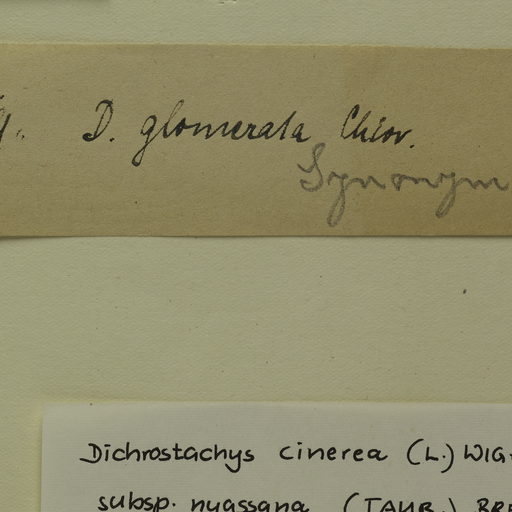 D. glomerata Chiov.
Synonym
Dichrostachys cinerea (L.) WIG
subsp. nyassana (TAUB.) BRE